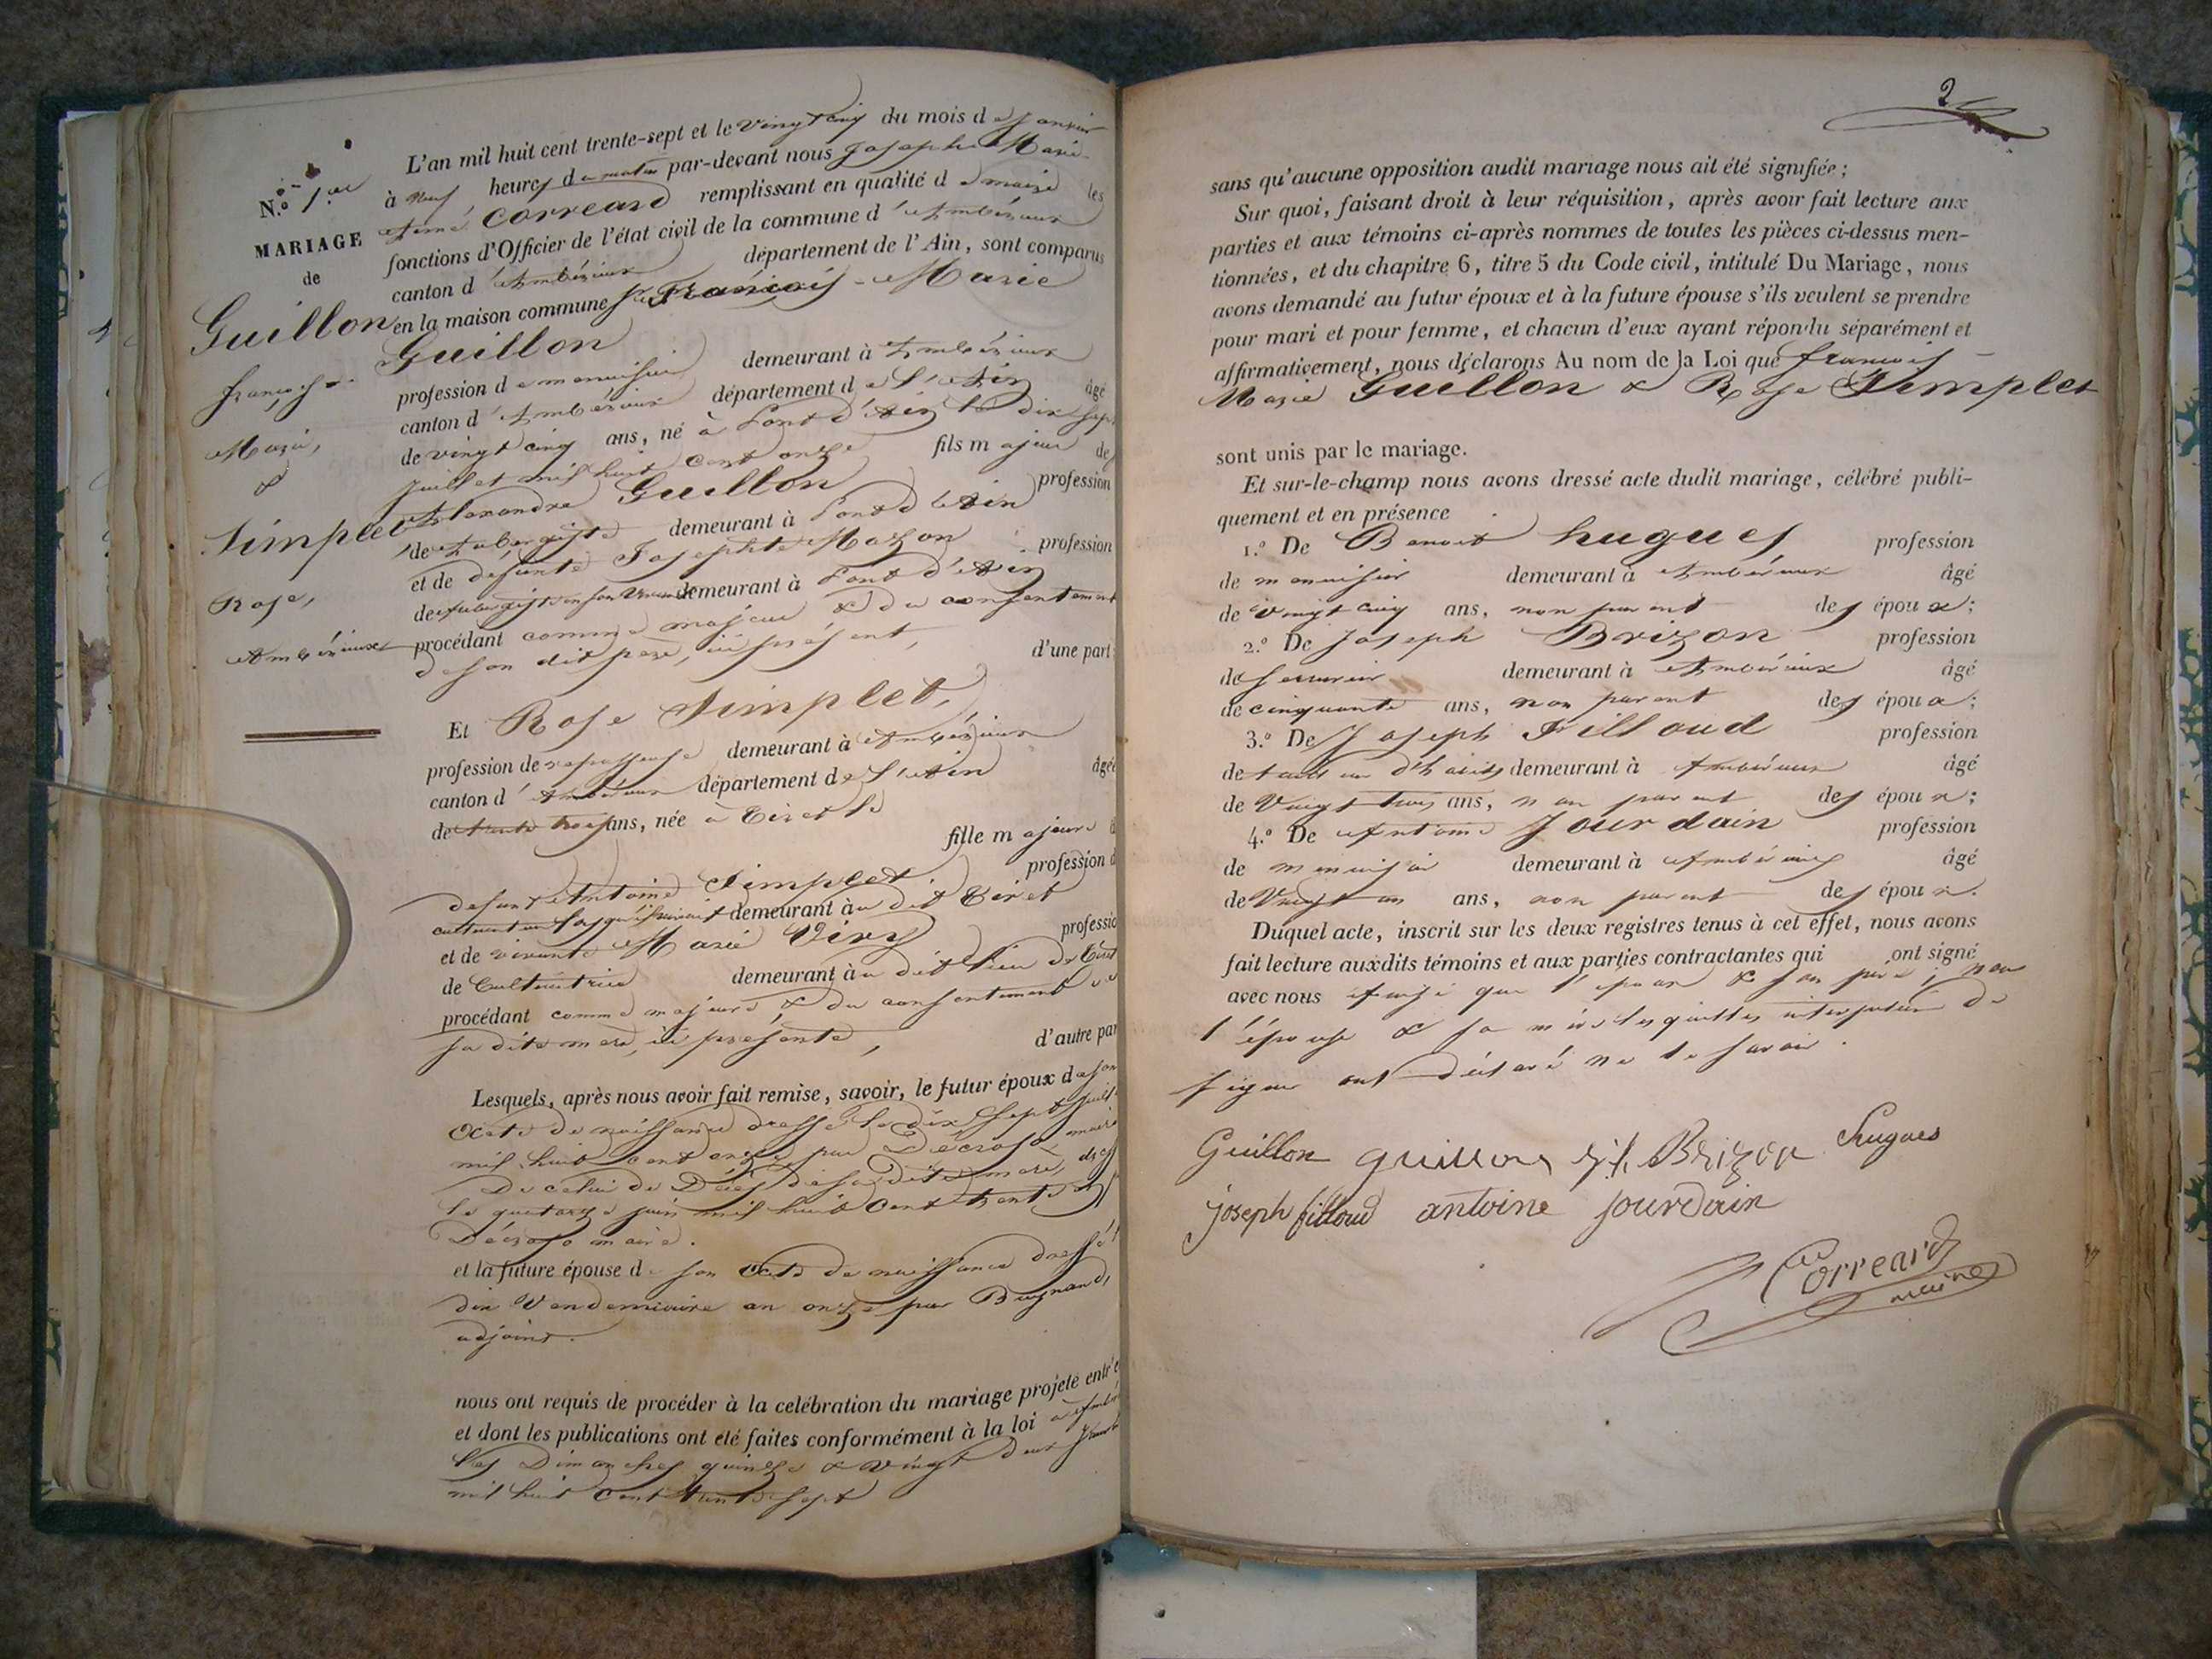 N.º 1.er
MARIAGE
de
Guillon
françois-
Marie,
&
Simplet
Rose,
Ambérieux
L'an mil huit cent trente-sept et le vingt cinq du mois de janvier
à neuf heures du matin par-devant nous Joseph Marie
Aimé Correard remplissant en qualité de maire les
fonctions d'Officier de l'état civil de la commune d'Ambérieux
canton d'Ambérieux département de l'Ain, sont comparus
en la maison commune Sr. François-Marie
Guillon
profession de menuisier demeurant à Ambérieux
canton d'Ambérieux département de l'Ain âgé
de vingt cinq ans, né à Pont d'Ain le dix sept
juillet mil huit cent onze fils majeur de
Alexandre Guillon profession
de Aubergiste demeurant à Pont d'Ain
et de defunte Josephte Mazon profession
de aubergiste en son vivant demeurant à Pont d'Ain
procédant comme majeur & du consentement
de son dit père, ici présent, d'une part
Et Rose Simplet,
profession de repasseuse demeurant à Ambérieux
canton d'Ambérieux département de l'Ain âgée
de trente trois ans, née à Ciret le
fille majeure d
defunt Antoine Simplet profession d
cultivateur lorsqu'il vivait demeurant à u dit Ciret
et de vivante Marie Viry professio
de Cultivatrice demeurant à u dit lieu de Ciret
procédant comme majeure & du consentement de
sa dite mère, ici présente, d'autre par
Lesquels, après nous avoir fait remise, savoir, le futur époux de son
acte de naissance dressé le dix sept juillet
mil huit cent onze par Décroso maire
De celui de Décès de sa dite mère, dressé
le quatorze juin mil huit cent trente
Décroso maire.
et la future épouse de son acte de naissance dressé l
dix Vendemiaire an onze par Bugnand,
adjoint.
nous ont requis de procéder à la celébration du mariage projeté entr'e
et dont les publications ont été faites conformément à la loi à Ambér
les Dimanches quinze & vingt deux Janvier
mil huit cent trente sept
2
sans qu'aucune opposition audit mariage nous ait été signifiée;
Sur quoi, faisant droit à leur réquisition, après avoir fait lecture aux
parties et aux témoins ci-après nommes de toutes les pièces ci-dessus men-
tionnées, et du chapitre 6, titre 5 du Code civil, intitulé Du Mariage, nous
avons demandé au futur époux et à la future épouse s'ils veulent se prendre
pour mari et pour femme, et chacun d'eux ayant répondu séparément et
affirmativement, nous déclarons Au nom de la Loi que françois-
Marie Guillon & Rose Simplet
sont unis par le mariage.
Et sur-le-champ nous avons dressé acte dudit mariage, célébré publi-
quement et en présence
1.º De Benoit hugues profession
de menuisier demeurant à Ambérieux âgé
de vingt cinq ans, non parent des époux;
2.º De Joseph Brizon profession
de serrurier demeurant à Ambérieux âgé
de cinquante ans, non parent des époux;
3.º De Joseph Filloud profession
de tailleur d'habits demeurant à Ambérieux âgé
de Vingt trois ans, non parent des époux;
4.º De Antoine Jourdain profession
de menuisier demeurant à Ambérieux âgé
de Vingt un ans, non parent des époux.
Duquel acte, inscrit sur les deux registres tenus à cet effet, nous avons
fait lecture auxdits témoins et aux parties contractantes qui ont signé
avec nous ainsi que l'époux & son père; non
l'épouse & sa mère lesquelles interpellées de
signer ont déclaré ne le savoir.
Guillon guillon Brizon hugues
joseph filloud antoine jourdain
Correard
maire